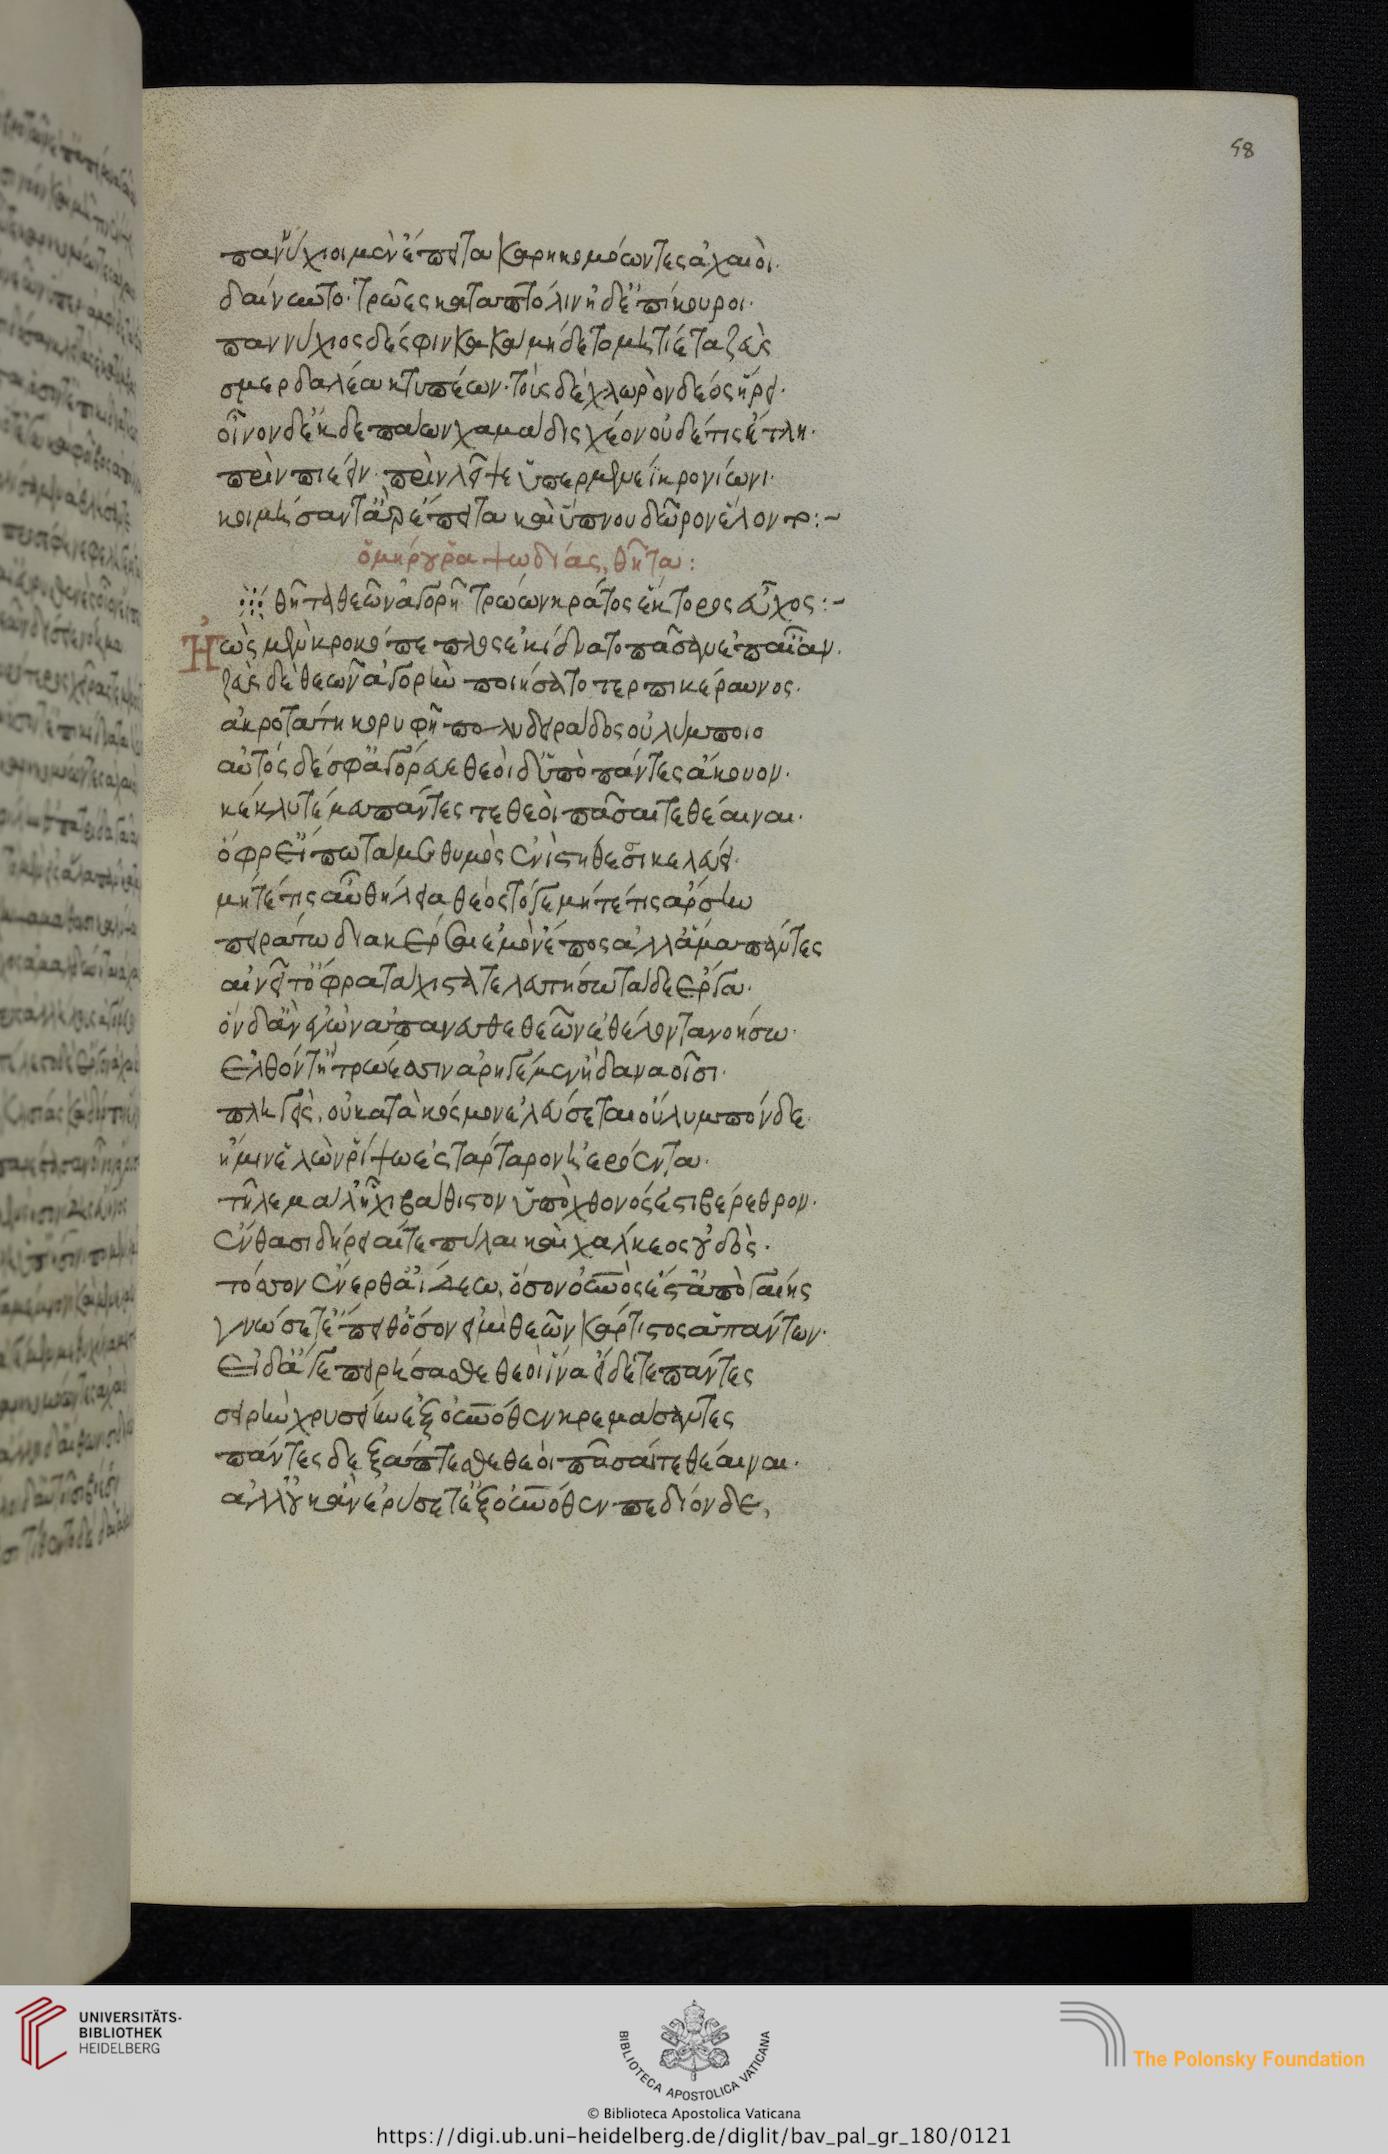 58
παννύχιοι μὲν ἔπειτα καρηκομόωντες ἀχαιοὶ.
δαίνυντο· τρῶες κατα πτόλιν ἠδ' ἐπίκουροι.
παννύχιος δέ σφιν κακα μήδετο μητίετα ζεὺς
σμερδαλέα κτυπέων· τοὺς δὲ χλωρὸν δέος ἥρει.
οἶνον δ' ἐκ δεπάων χαμάδις χέον οὐδέ τις ἔτλη.
πρὶν πιέειν· πρὶν λεῖψε ὑπερμενέϊ κρονίωνι.
κοιμήσαντ' ἂρ ἔπειτα καὶ ὕπνου δῶρον ἕλοντο:~
ὁμήρου ῥαψωδίας, θῆτα:
θῆτα θεῶν ἀγορὴ τρώων κράτος ἕκτορος εὖχος:~
Ἠὼς μὲν κροκόπεπλος ἐκίδνατο πᾶσαν ἐπ' αἶαν.
ζεὺς δὲ θεῶν ἀγορὴν ποιήσατο τερπικέραυνος.
ἀκροτάτη κορυφῇ πολυδειράδος οὐλύμποιο
αὐτός δέ σφ' ἀγόρευε θεοὶ δ' ὑπὸ πάντες ἄκουον.
κέκλυτέ μευ πάντες τε θεοὶ πᾶσαι τε θέαιναι.
ὄφρ' εἴπω τά με θυμὸς ἐνὶ στήθεσι κελεύει.
μήτέ τις οὖν θήλεια θεὸς τόγε μήτέ τις ἄρσην
πειράτω διακέρσαι ἐμὸν ἔπος ἀλλ' ἅμα πάντες
αἰνεῖτ' ὄφρα τάχιστα τελευτήσω τάδε ἔργα.
ὃν δ' ἂν ἐγὼν ἀπάνευθε θεῶν ἐθέλοντα νοήσω.
ἐλθόντ' ἢ τρώεσσιν ἀρηγέμεν ἢ δαναοῖσι.
πληγεὶς, οὐ κατὰ κόσμον ἐλεύσεται οὔλυμπόνδε.
ἤ μιν ἑλὼν ῥίψω ἐς τάρταρον ἠερόεντα.
τῆλε μάλ' ἧχι βάθιστον ὑπὸ χθονός ἐστι βέρεθρον.
ἔνθα σιδήρειαί τε πύλαι καὶ χάλκεος οὐδὸς.
τόσσον ἔνερθ' ἀΐδεω, ὅσον οὐρανὸς ἐστ' ἀπὸ γαίης
γνώσετ' ἔπειθ' ὅσον εἰμὶ θεῶν κάρτιστος ἁπάντων.
εἰ δ' ἄγε πειρήσασθε θεοὶ ἵνα εἴδετε πάντες
σειρὴν χρυσείην ἐξ οὐρανόθεν κρεμάσαντες
πάντες δ' ἐξάπτεσθε θεοὶ πᾶσαί τε θέαιναι.
ἀλλ' οὐκ ἂν ἐρύσετ' ἐξ οὐρανόθεν πεδιόνδε,
UNIVERSITÄTS-
BIBLIOTHEK
HEIDELBERG
BIBLIOTECA APOSTOLICA VATICANA
The Polonsky Foundation
© Biblioteca Apostolica Vaticana
https://digi.ub.uni-heidelberg.de/diglit/bav_pal_gr_180/0121